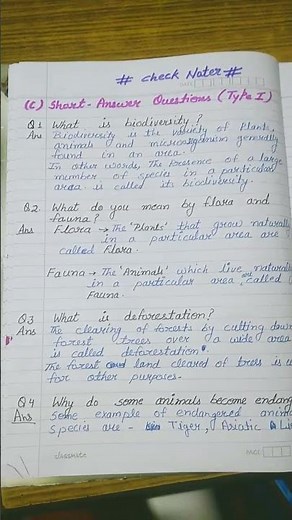 # Check Notes #
(C) Short-Answer Questions (Type I)
Q1 What is biodiversity?
Ans Biodiversity is the variety of Plants,
animals and microorganism generally
found in an area.
In other words, The Presence of a large
number of species in a particular
area is called its biodiversity.
Q2. What do you mean by flora and
fauna?
Ans Flora → The 'Plants' that grow naturall
in a particular area are
called Flora.
Fauna → The 'Animals' which live naturall
in a particular area are called
Fauna.
Q3 What is deforestation?
Ans The clearing of forests by cutting down
forest trees over a wide area
is called deforestation.
The forest land cleared of trees is u
for other purposes.
Q4 Why do some animals become endang
Ans Some example of endangered anim
species are - Tiger, Asiatic Li
classmate
PAGE